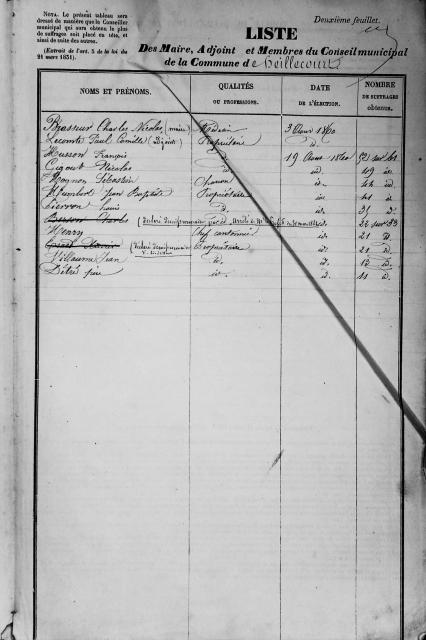 NOTA. Le présent tableau sera
dressé de manière que le Conseiller
municipal qui aura obtenu le plus
de suffrages soit placé en tête, et
ainsi de suite des autres.
(Extrait de l'art. 5 de la loi du
21 mars 1831).
Deuxième feuillet.
LISTE
Des Maire, Adjoint et Membres du Conseil municipal
de la Commune d'e Heillecourt
NOMS ET PRÉNOMS.
QUALITÉS
OU PROFESSIONS.
DATE
DE L'ÉLECTION.
NOMBRE
DE SUFFRAGES
obtenus.
Brasseur Charles Nicolas (maire) Médecin 3 1840
Lecomte Paul Camille (Adjoint) Propriétaire id.
Husson François id. 19 1840 52 sur 61
Gigout Nicolas id. id. 49 id.
Magnon Sébastien id. 44 id.
Humbert Jean Baptiste Propriétaire id. 41 id.
Pierron Louis id. id. 31 id.
Charles
Henry Chef cantonnier id. 21 id.
Propriétaire id. 21 id.
Villaume Jean id. id. 12 id.
Détré père id. id. 11 id.